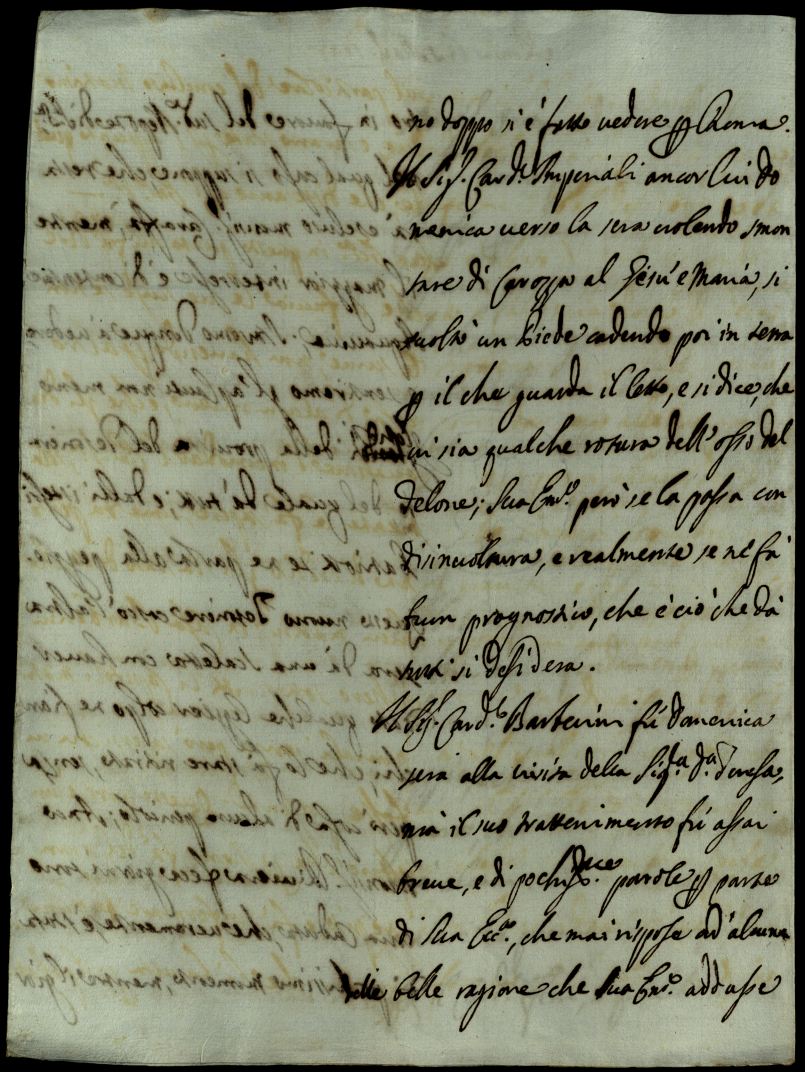 no doppo si è fatto vedere p Roma.
Il Sig.r Card.l Imperiali ancor lui do
menica verso la sera volendo smon
tare di Carozza al Giesù e Maria, si
voltò un Piede cadendo poi in terra
p il che guarda il letto, e si dice, che
vi sia qualche rottura dell'osso del
Talone; Sua Em.a però se la passa con
disinvoltura, e realmente se ne fà
buon prognostico, che è ciò che dà
tutti si desidera.
Il Sig.r Card.l Barberini fù domenica
sera alla visita della Sig.a D.a Teresa,
mà il suo trattenimento fù assai
breve, e di pochiss.me parole p parte
di Sua Ecc.a, che mai rispose ad'alcuna
delle belle ragione che Sua Em.a addusse